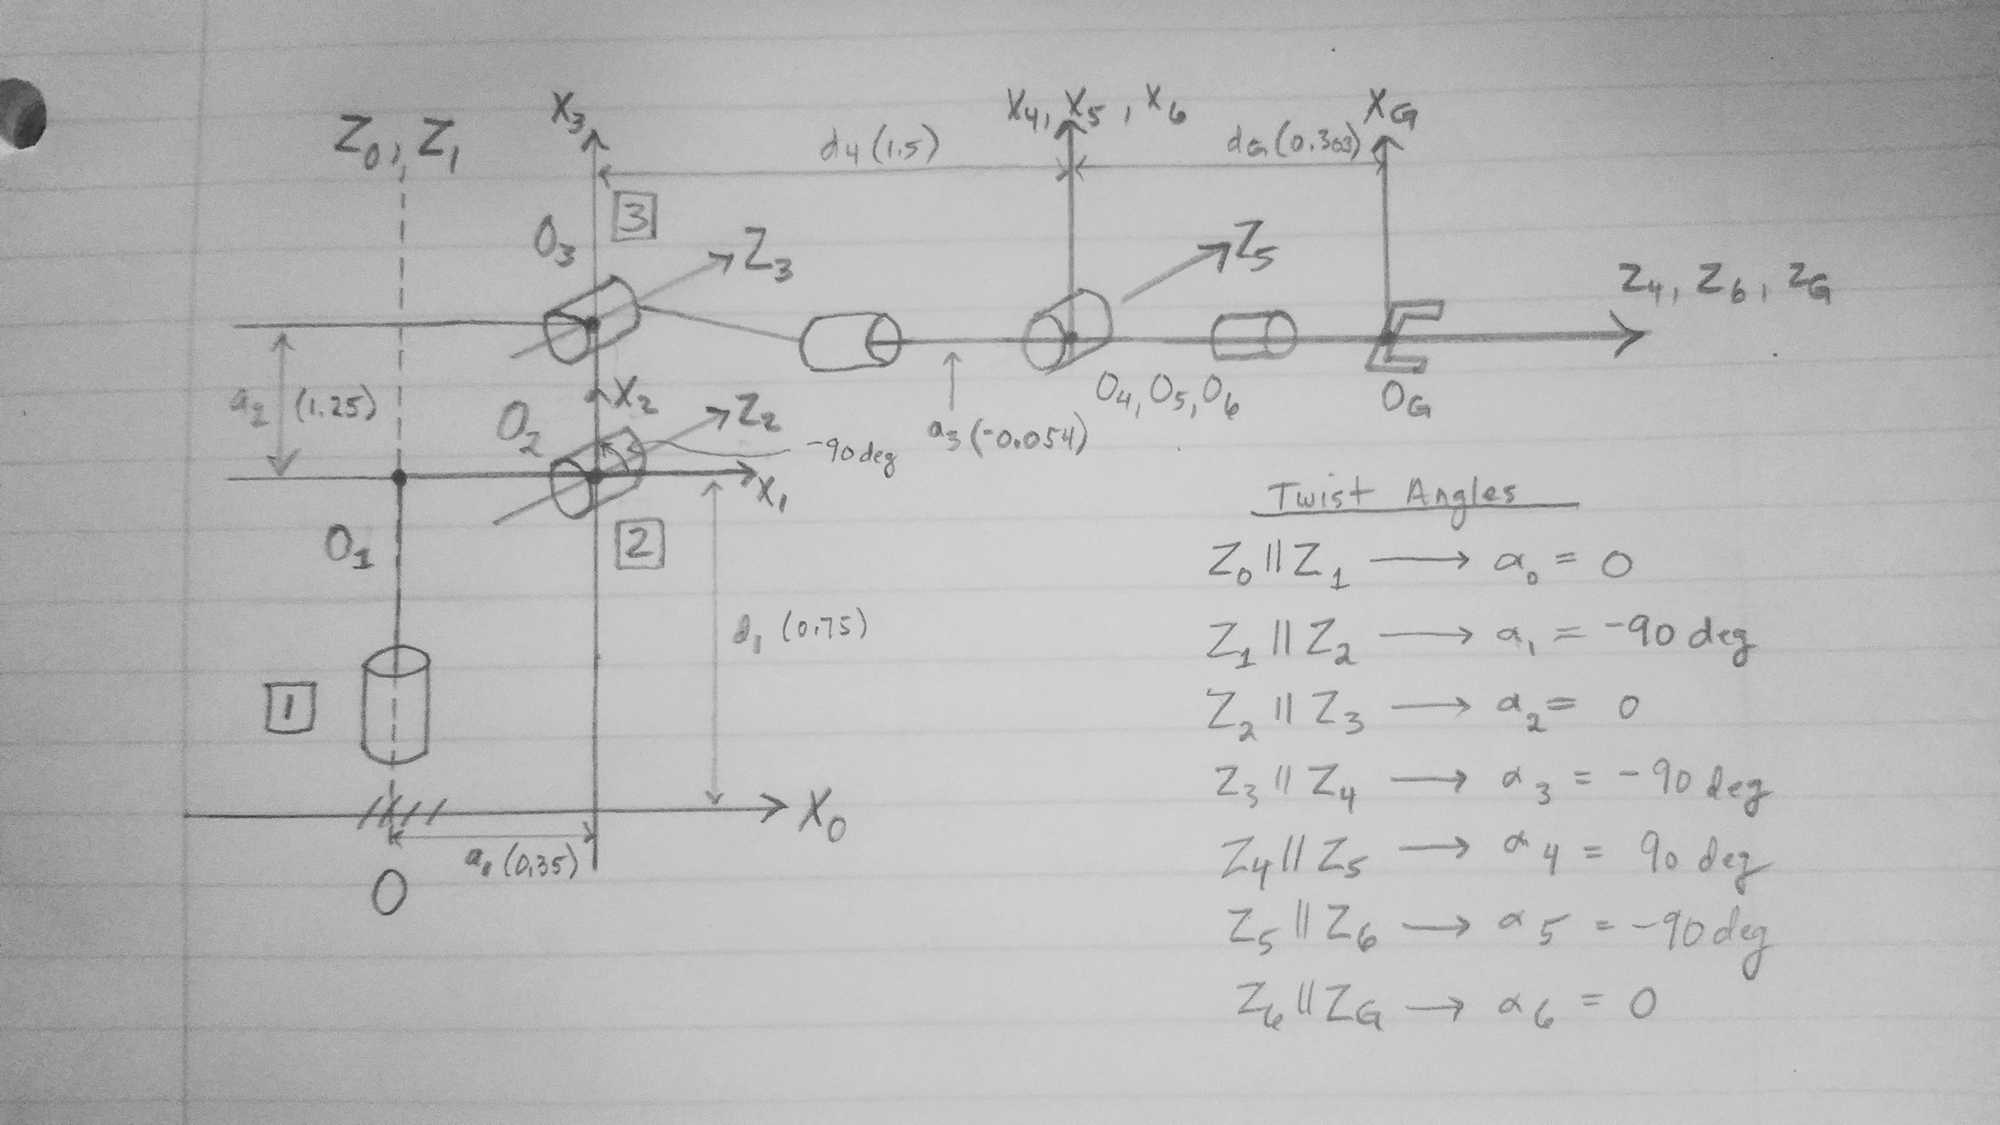 Z₀, Z₁
X₃
X₄, X₅, X₆
X_G
d₄ (1.5)
d_G (0.303)
3
O₃
Z₃
Z₅
Z₄, Z₆, Z_G
a₂ (1.25)
X₂
O₂
Z₂
-90 deg
a₃ (-0.054)
O₄, O₅, O₆
O_G
X₁
O₁
2
d₁ (0.75)
1
X₀
a₁ (0.35)
O
Twist Angles
Z₀ || Z₁ → α₀ = 0
Z₁ || Z₂ → α₁ = -90 deg
Z₂ || Z₃ → α₂ = 0
Z₃ || Z₄ → α₃ = -90 deg
Z₄ || Z₅ → α₄ = 90 deg
Z₅ || Z₆ → α₅ = -90 deg
Z₆ || Z_G → α₆ = 0